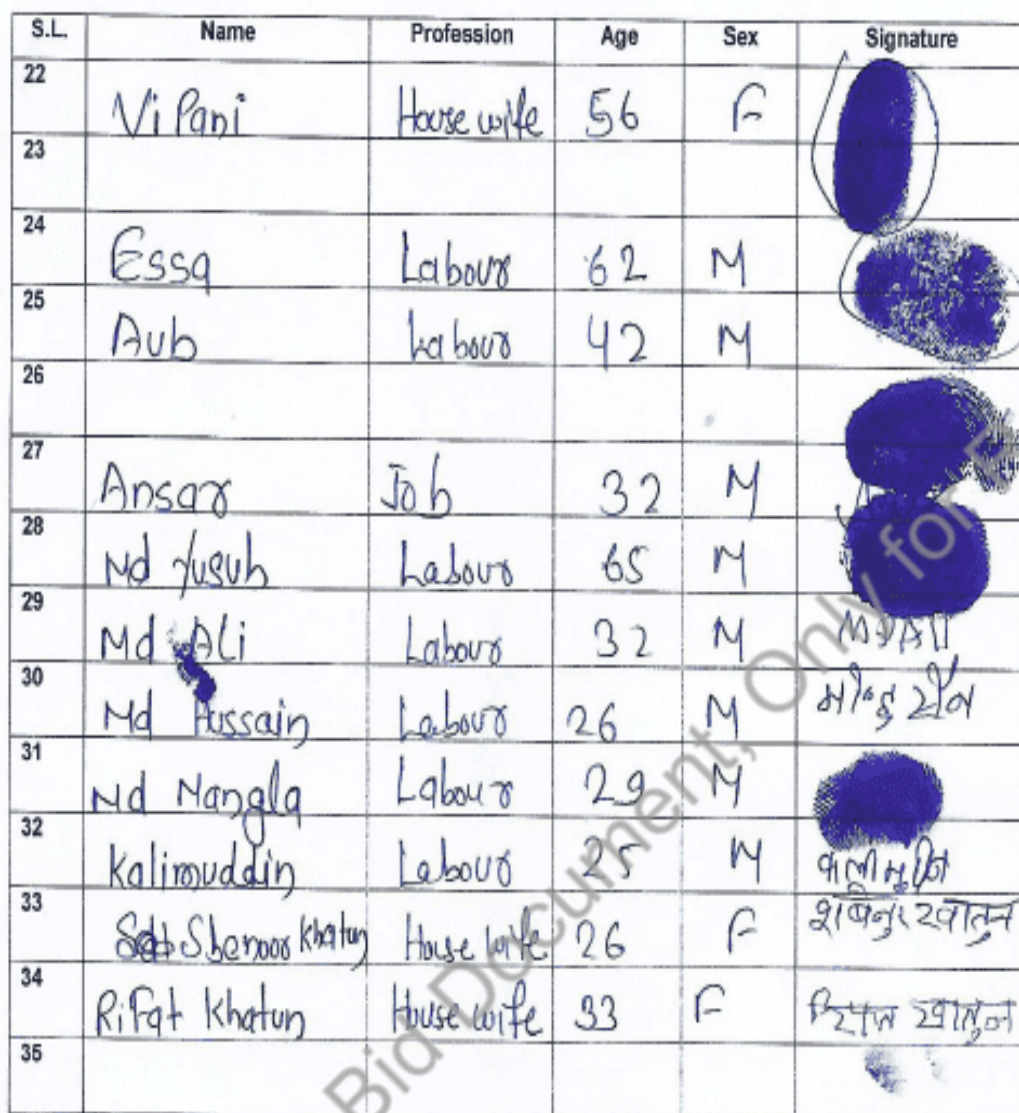 S.L. Name Profession Age Sex Signature
22 Vi Pani House wife 56 F
23
24 Essa Labour 62 M
25 Aub Labour 42 M
26
27 Ansar Job 32 M
28 Md Yusuh Labour 65 M
29 Md Ali Labour 32 M MD Ali
30 Md Hussain Labour 26 M
31 Md Mangla Labour 29 M
32 Kalimuddin Labour 25 M
33 Shenoor Khatun House wife 26 F शबनुर खातुन
34 Rifat Khatun House wife 33 F खातुन
35
Bid Document, Only for